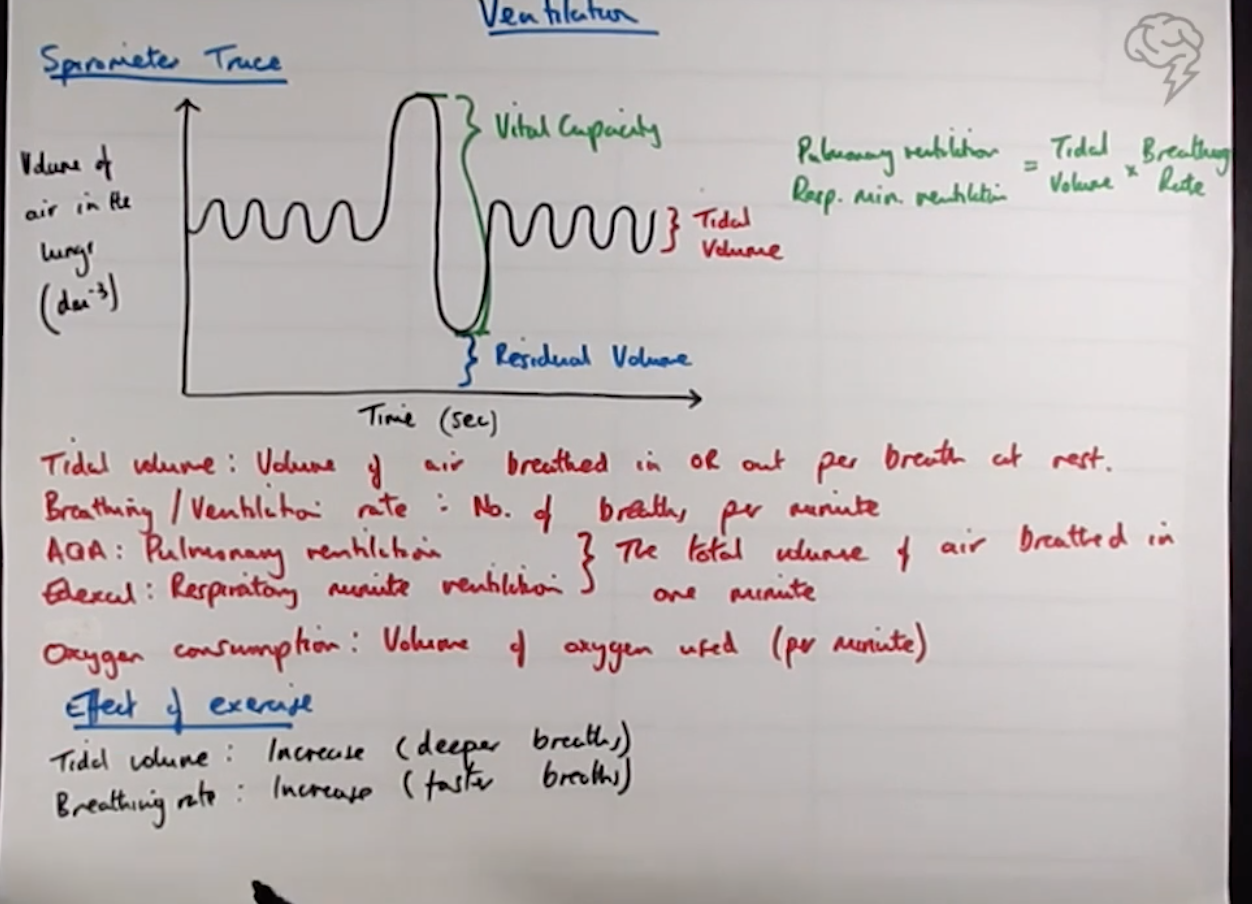 Ventilation
Spirometer Trace
Vital Capacity
Volume of
air in the
lungs
(dm⁻³)
Pulmonary ventilation
Resp. min. ventilation
= Tidal Volume × Breathing Rate
Tidal
Volume
Residual Volume
Time (sec)
Tidal volume : Volume of air breathed in OR out per breath at rest.
Breathing / Ventilation rate : No. of breaths per minute
AQA : Pulmonary ventilation } The total volume of air breathed in
Edexcel : Respiratory minute ventilation } one minute
Oxygen consumption : Volume of oxygen used (per minute)
Effect of exercise
Tidal volume : Increase (deeper breaths)
Breathing rate : Increase (faster breaths)